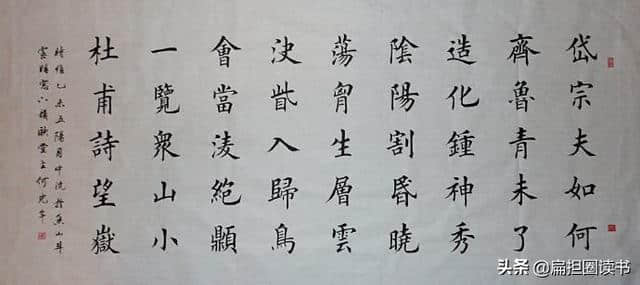 岱宗夫如何
齊魯青未了
造化鍾神秀
陰陽割昬曉
蕩胷生層雲
決眥入歸鳥
會當淩絕
一覽衆山小
杜甫詩望嶽
時值乙未五陽月中浣於魚山
堂主何光年
头条 @扁担圈读书